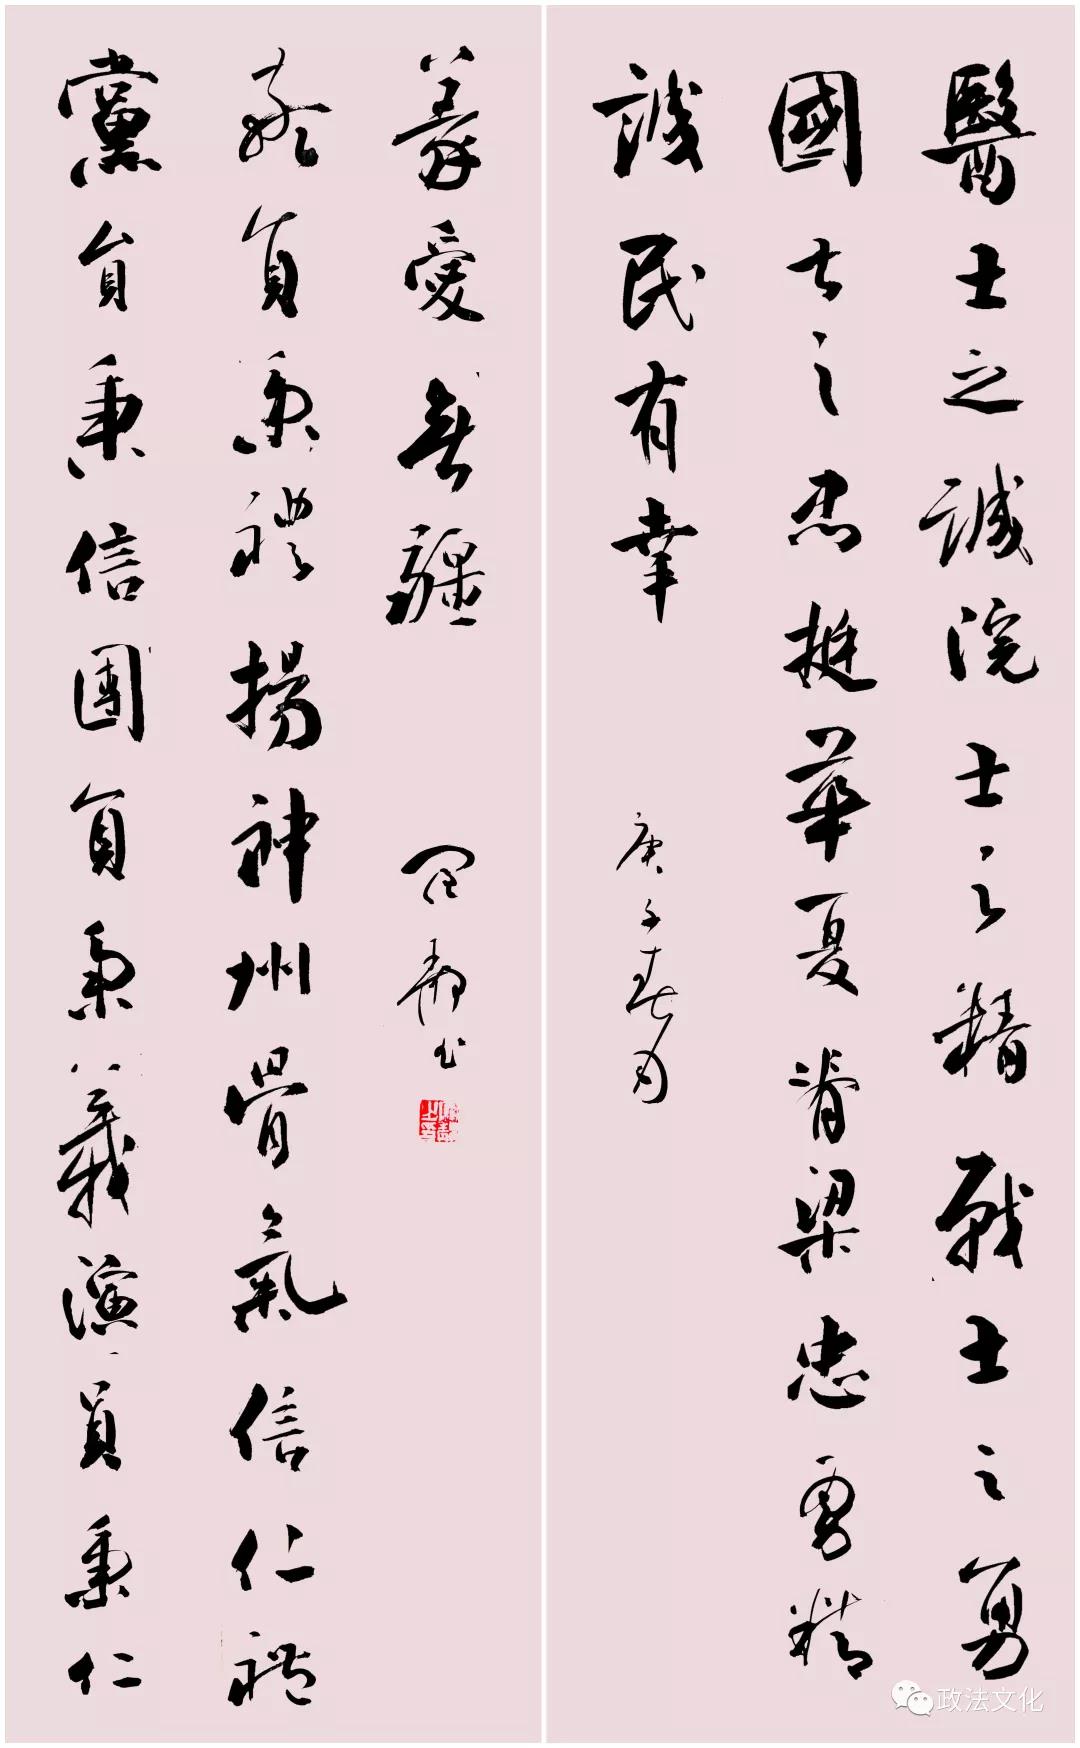 醫士之誠院士之精戰士之勇
國士之忠挺華夏脊梁忠勇精
誠民有幸
庚子春月
黨員秉信團員秉義演員秉仁
員秉禮揚神州骨氣信仁禮
義愛無疆
書
政法文化